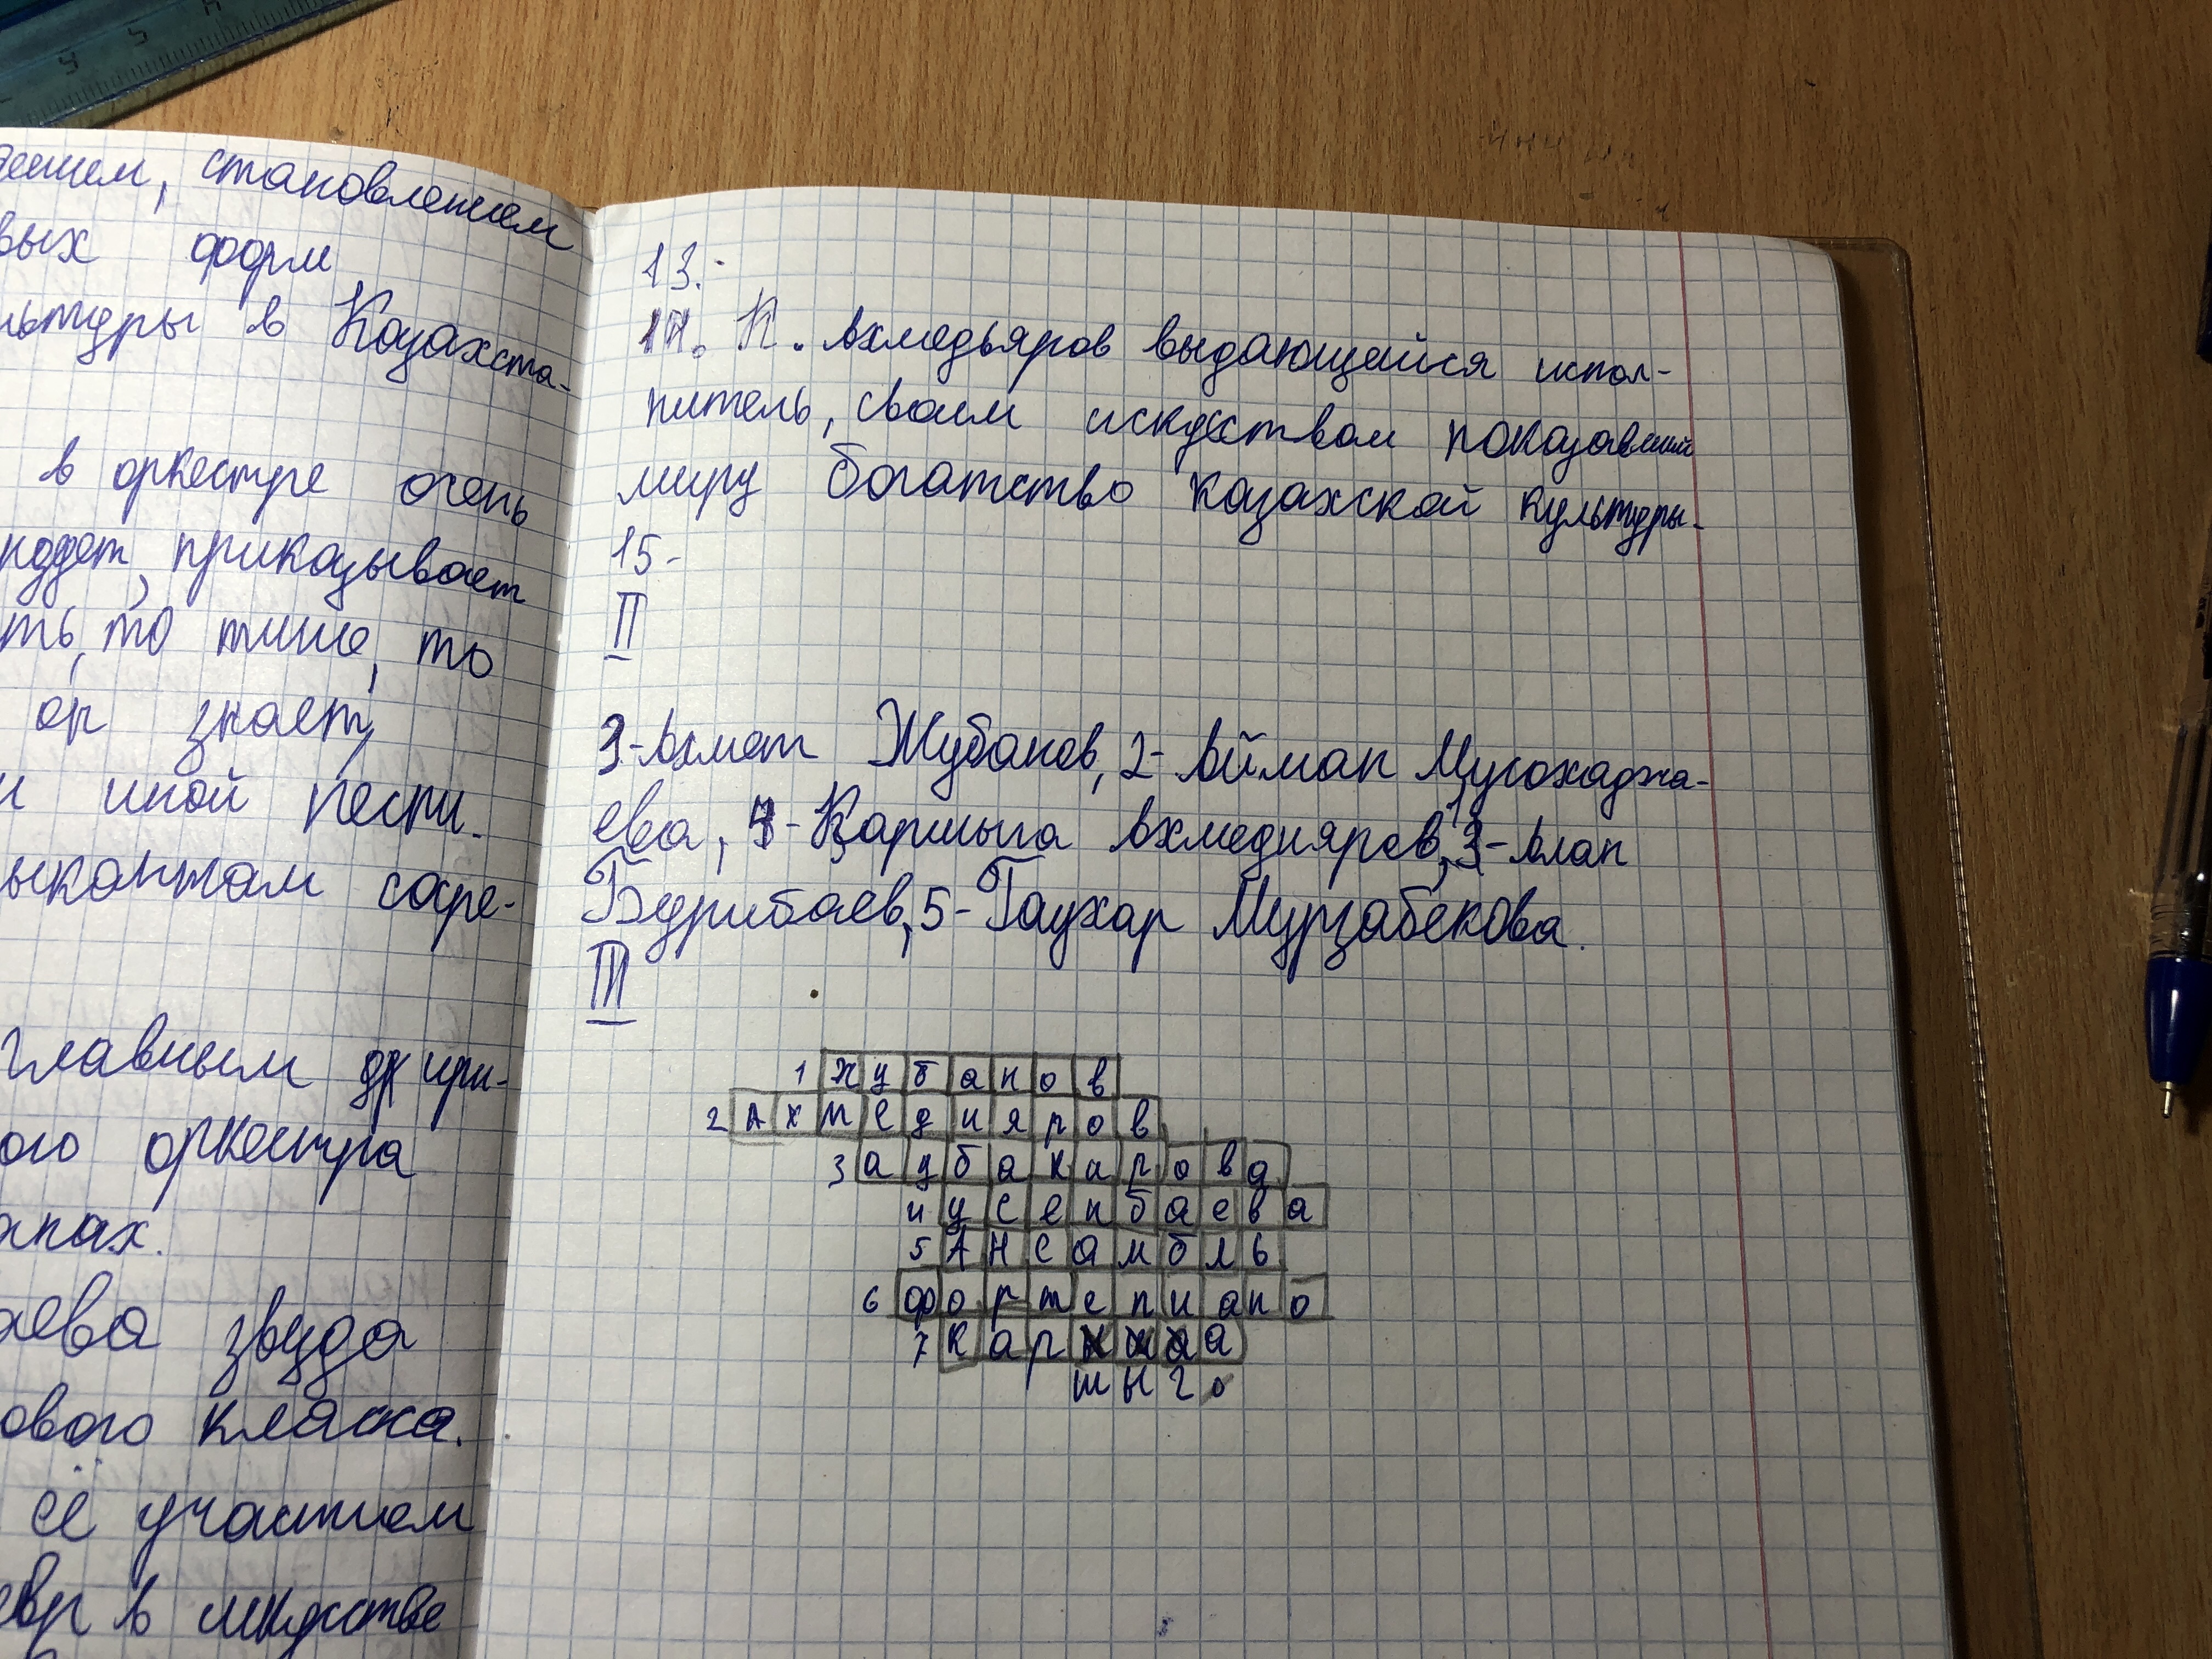 становлением
вых форм
льтуры в Казахста-
в оркестре очень
приказывает
ть, то тише, то
он знает,
и иной песни.
ыкантам соре-
главным дири-
ого оркестра
апах.
аева звезда
ового класса.
её участием
евр в искусстве
13.-
14. К. Ахмедьяров выдающейся испол-
нитель, своим искусством показавший
миру богатство казахской культуры.
15-
II
Ахмет Жубанов, 2- Айман Мусохаджа-
ева, 4- Каршыга Ахмедияров, 3- Алан
Бурибаев, 5- Гаухар Мурзабекова.
III
1 жубанов
2 Ахмедияров
3 аубакирова
4 усенбаева
5 Ансамбль
6 фортепиано
7 кар а
шыг